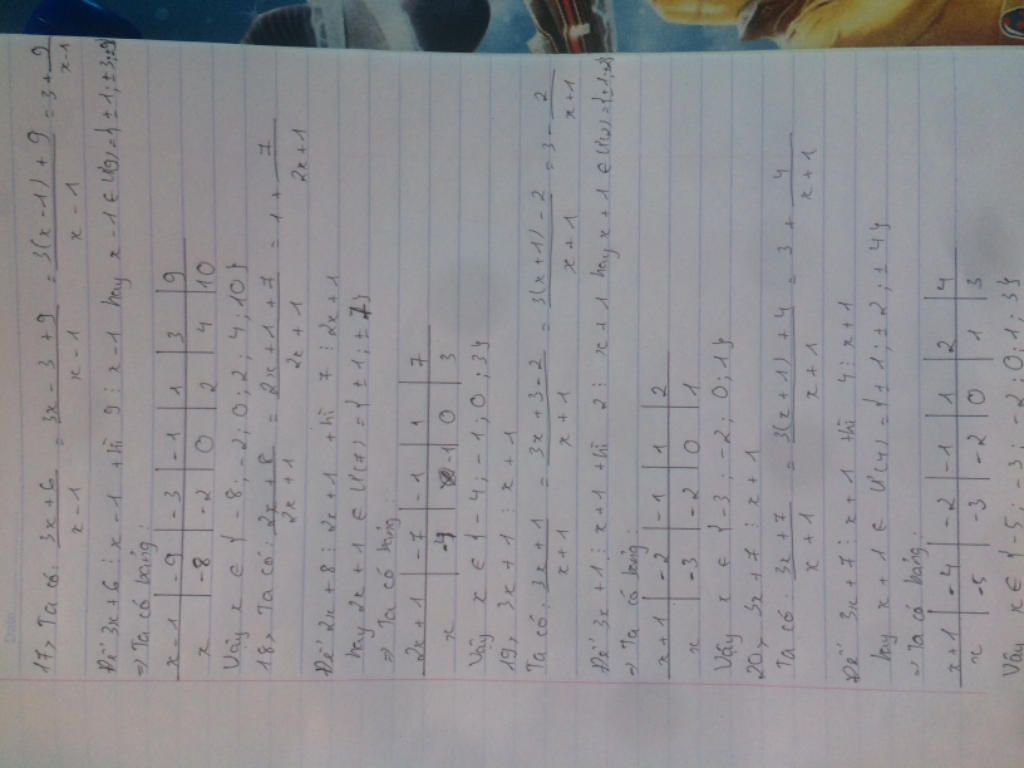 17, Ta có: (3x+6)/(x-1) = (3x-3+9)/(x-1) = (3(x-1)+9)/(x-1) = 3 + 9/(x-1)
Để 3x+6 ⋮ x-1 thì 9 ⋮ x-1 hay x-1 ∈ Ư(9) = {±1; ±3; ±9}
⇒ Ta có bảng:
x-1 | -9 | -3 | -1 | 1 | 3 | 9
x | -8 | -2 | 0 | 2 | 4 | 10
Vậy x ∈ {-8; -2; 0; 2; 4; 10}
18, Ta có: (2x+8)/(2x+1) = (2x+1+7)/(2x+1) = 1 + 7/(2x+1)
Để 2x+8 ⋮ 2x+1 thì 7 ⋮ 2x+1
hay 2x+1 ∈ Ư(7) = {±1; ±7}
⇒ Ta có bảng:
2x+1 | -7 | -1 | 1 | 7
x | -4 | -1 | 0 | 3
Vậy x ∈ {-4; -1; 0; 3}
19, 3x+1 ⋮ x+1
Ta có: (3x+1)/(x+1) = (3x+3-2)/(x+1) = (3(x+1)-2)/(x+1) = 3 - 2/(x+1)
Để 3x+1 ⋮ x+1 thì 2 ⋮ x+1 hay x+1 ∈ Ư(2) = {±1; ±2}
⇒ Ta có bảng:
x+1 | -2 | -1 | 1 | 2
x | -3 | -2 | 0 | 1
Vậy x ∈ {-3; -2; 0; 1}
20, 3x+7 ⋮ x+1
Ta có: (3x+7)/(x+1) = (3(x+1)+4)/(x+1) = 3 + 4/(x+1)
Để 3x+7 ⋮ x+1 thì 4 ⋮ x+1
hay x+1 ∈ Ư(4) = {±1; ±2; ±4}
⇒ Ta có bảng
x+1 | -4 | -2 | -1 | 1 | 2 | 4
x | -5 | -3 | -2 | 0 | 1 | 3
Vậy x ∈ {-5; -3; -2; 0; 1; 3}